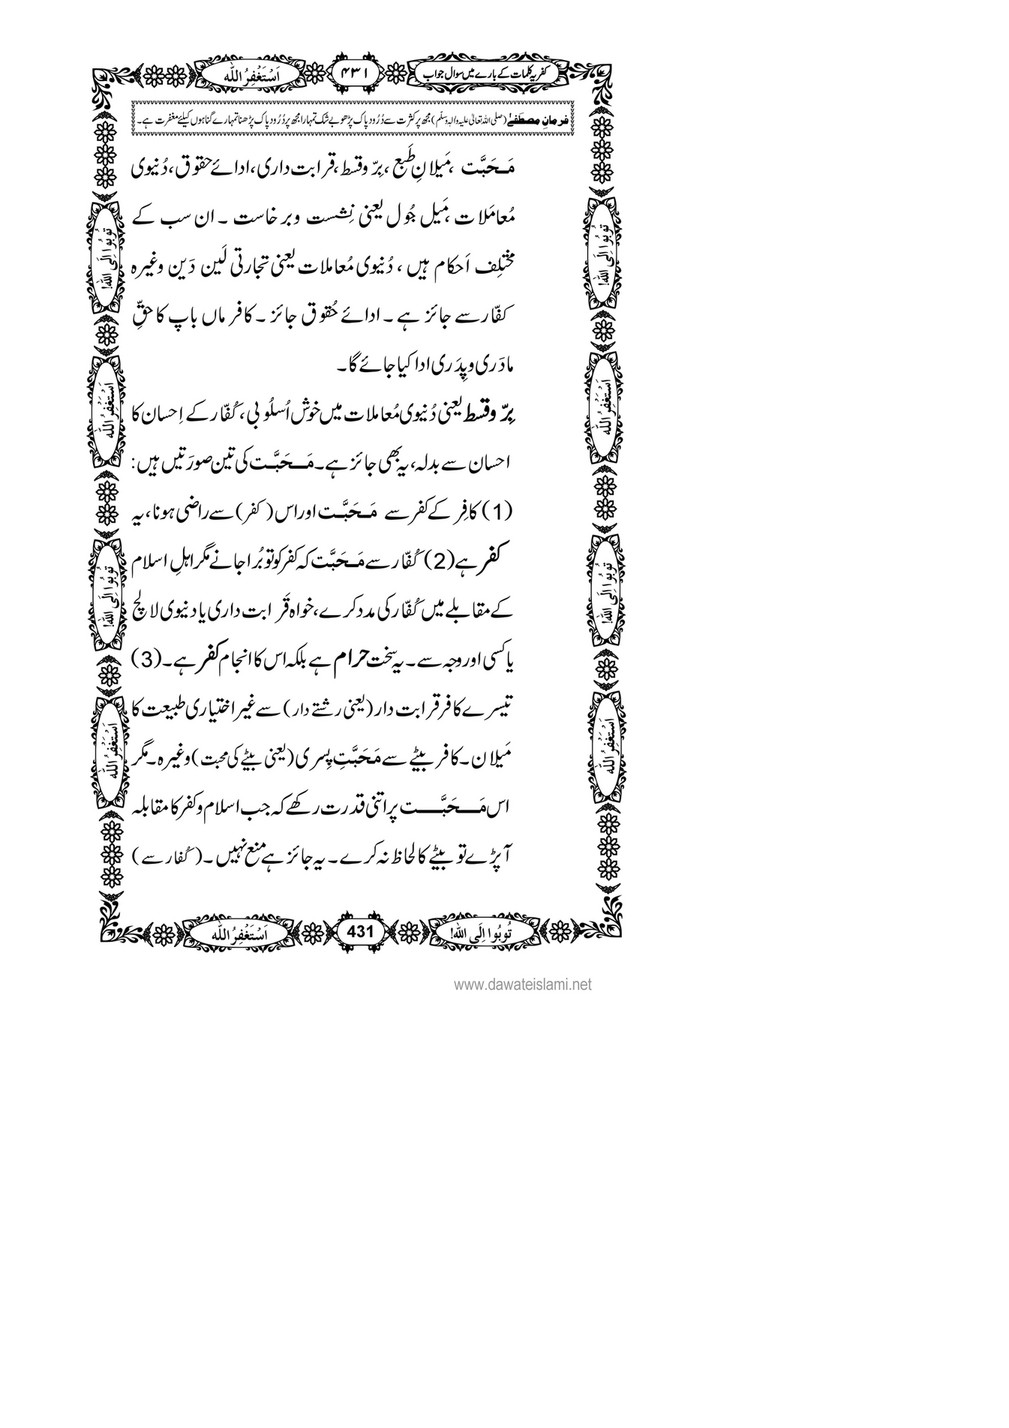 کفریہ کلمات کے بارے میں سوال جواب
٤٣١
اَسْتَغْفِرُ اللّٰه
فرمانِ مصطَفٰے (صلی اللہ تعالیٰ علیہ واٰلہٖ وسلّم) مجھ پر کثرت سے دُرُود پاک پڑھو بے شک تمہارا مجھ پر دُرُود پاک پڑھنا تمہارے گناہوں کیلئے مغفرت ہے۔
مَحَبَّت ، مَیلانِ طَبع ، بِرّ وقسط، قرابت داری، ادائے حقوق، دُنیوی
مُعامَلات ، مَیل جُول یعنی نِشست وبرخاست ۔ ان سب کے
مختلِف اَحکام ہیں ، دُنیوی مُعاملات یعنی تجارتی لَین دَین وغیرہ
کفّار سے جائز ہے ۔ ادائے حُقوق جائز ۔ کافر ماں باپ کا حقِّ
مادَری و پِدَری ادا کیا جائے گا۔
بِرّ وقسط یعنی دُنیوی مُعاملات میں خوش اُسلُوبی، کُفّار کے اِحسان کا
احسان سے بدلہ، یہ بھی جائز ہے۔ مَحَبَّت کی تین صورَتیں ہیں:
(1) کافِر کے کفر سے مَحَبَّت اور اس (کفر) سے راضی ہونا، یہ
کفر ہے (2) کُفّار سے مَحَبَّت کہ کفر کو تو بُرا جانے مگر اہلِ اسلام
کے مقابلے میں کُفّار کی مدد کرے، خواہ قَرابت داری یا دنیوی لالچ
یا کسی اور وجہ سے۔ یہ سخت حرام ہے بلکہ اس کا انجام کفر ہے۔ (3)
تیسرے کافر قرابت دار (یعنی رشتے دار) سے غیر اختیاری طبیعت کا
مَیلان۔ کافر بیٹے سے مَحَبَّتِ پِسری (یعنی بیٹے کی محبت) وغیرہ۔ مگر
اس مَحَبَّت پر اتنی قدرت رکھے کہ جب اسلام و کفر کا مقابلہ
آپڑے تو بیٹے کا لحاظ نہ کرے۔ یہ جائز ہے منع نہیں۔ (کُفّار سے)
تُوبُوا اِلَی اللّٰه!
تُوبُوا اِلَی اللّٰه!
اَسْتَغْفِرُ اللّٰه
اَسْتَغْفِرُ اللّٰه
تُوبُوا اِلَی اللّٰه!
تُوبُوا اِلَی اللّٰه!
اَسْتَغْفِرُ اللّٰه
اَسْتَغْفِرُ اللّٰه
تُوبُوا اِلَی اللّٰه!
431
اَسْتَغْفِرُ اللّٰه
www.dawateislami.net